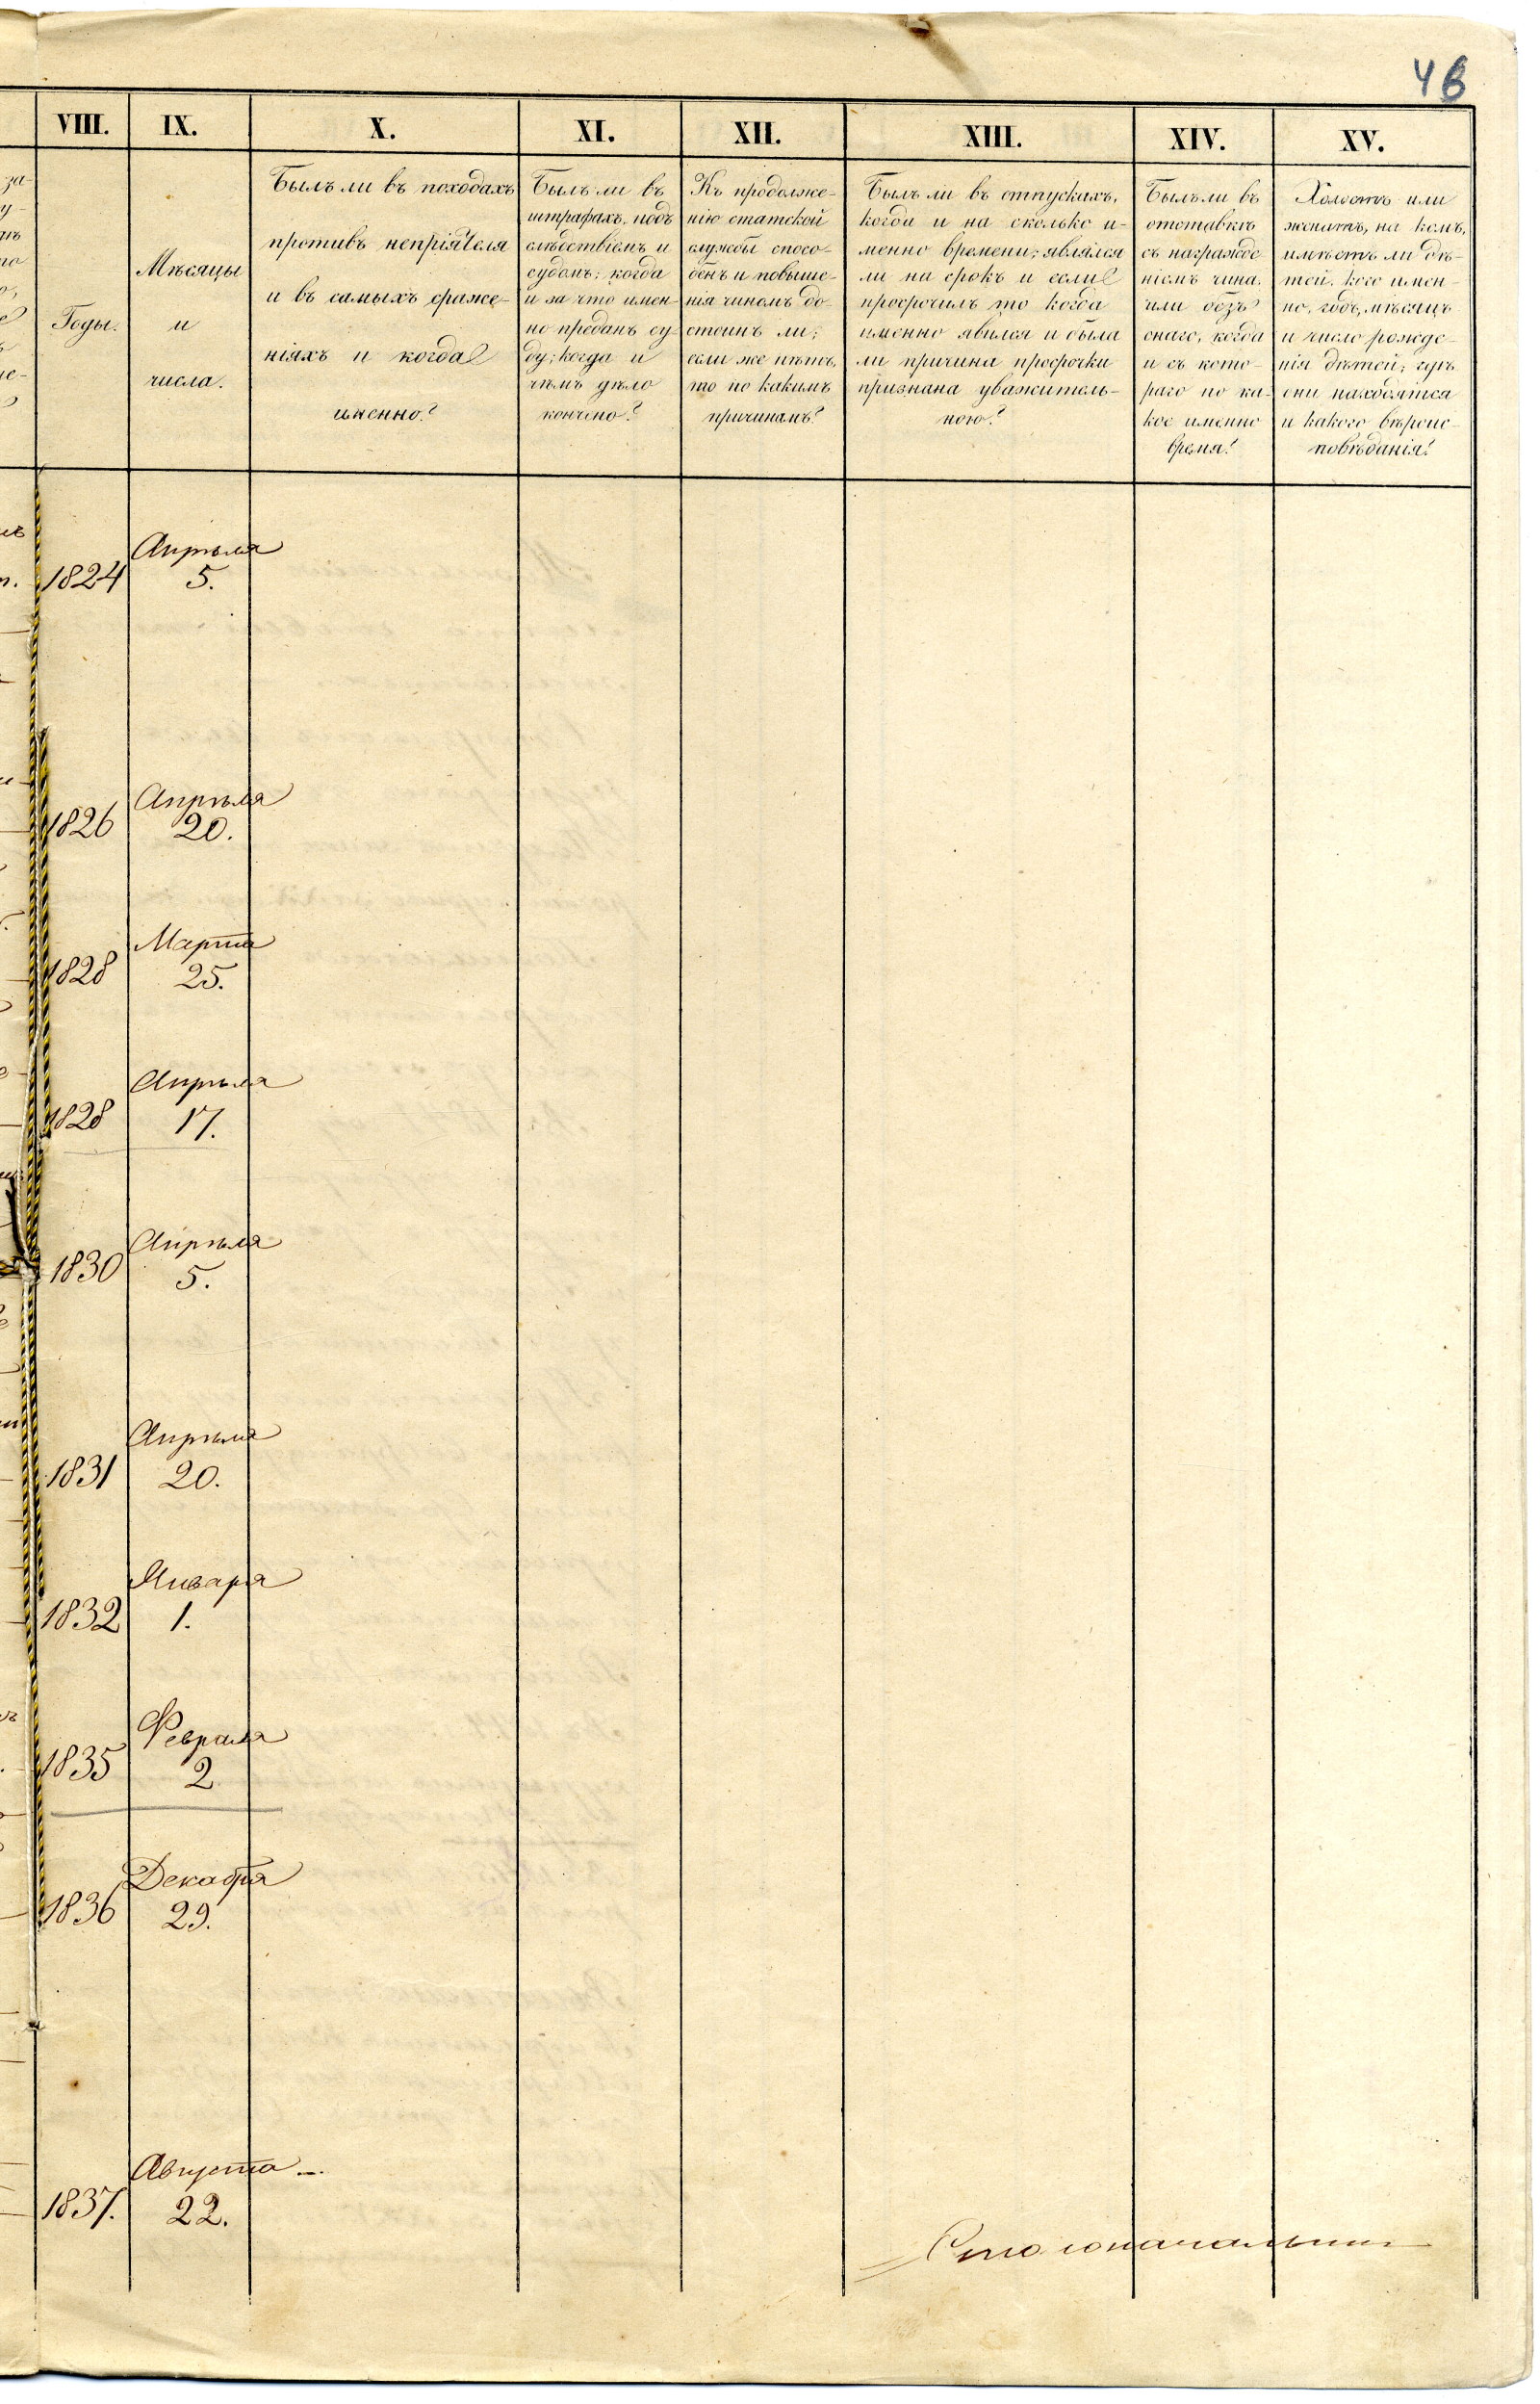 46
VIII.
IX.
X.
XI.
XII.
XIII.
XIV.
XV.
за-
у-
Годы.
Мѣсяцы
и
числа.
Былъ ли въ походахъ
противъ непріятеля
и въ самыхъ сраже-
ніяхъ и когда
именно?
Былъ ли въ
штрафахъ, подъ
слѣдствіемъ и
судомъ; когда
и за что имен-
но преданъ су-
ду; когда и
чѣмъ дѣло
кончено?
Къ продолже-
нію статской
службы спосо-
бенъ и повыше-
нія чиномъ до-
стоинъ ли;
если же нѣтъ,
то по какимъ
причинамъ?
Былъ ли въ отпускахъ,
когда и на сколько и-
менно времени; являлся
ли на срокъ и если
просрочилъ то когда
именно явился и была
ли причина просрочки
признана уважитель-
ною?
Былъ ли въ
отставкѣ
съ награжде-
ніемъ чина,
или безъ
онаго, когда
и съ кото-
раго по ка-
кое именно
время?
Холостъ или
женатъ, на комъ,
имѣетъ ли дѣ-
тей, кого имен-
но, годъ, мѣсяцъ
и число рожде-
нія дѣтей; гдѣ
они находятся
и какого вѣроис-
повѣданія?
Апрѣля
1824 5.
Апрѣля
1826 20.
Марта
1828 25.
Апрѣля
1828 17.
Апрѣля
1830 5.
Апрѣля
1831 20.
Января
1832 1.
Февраля
1835 2
Декабря
1836 29.
Августа
1837. 22.
Столоначальникъ